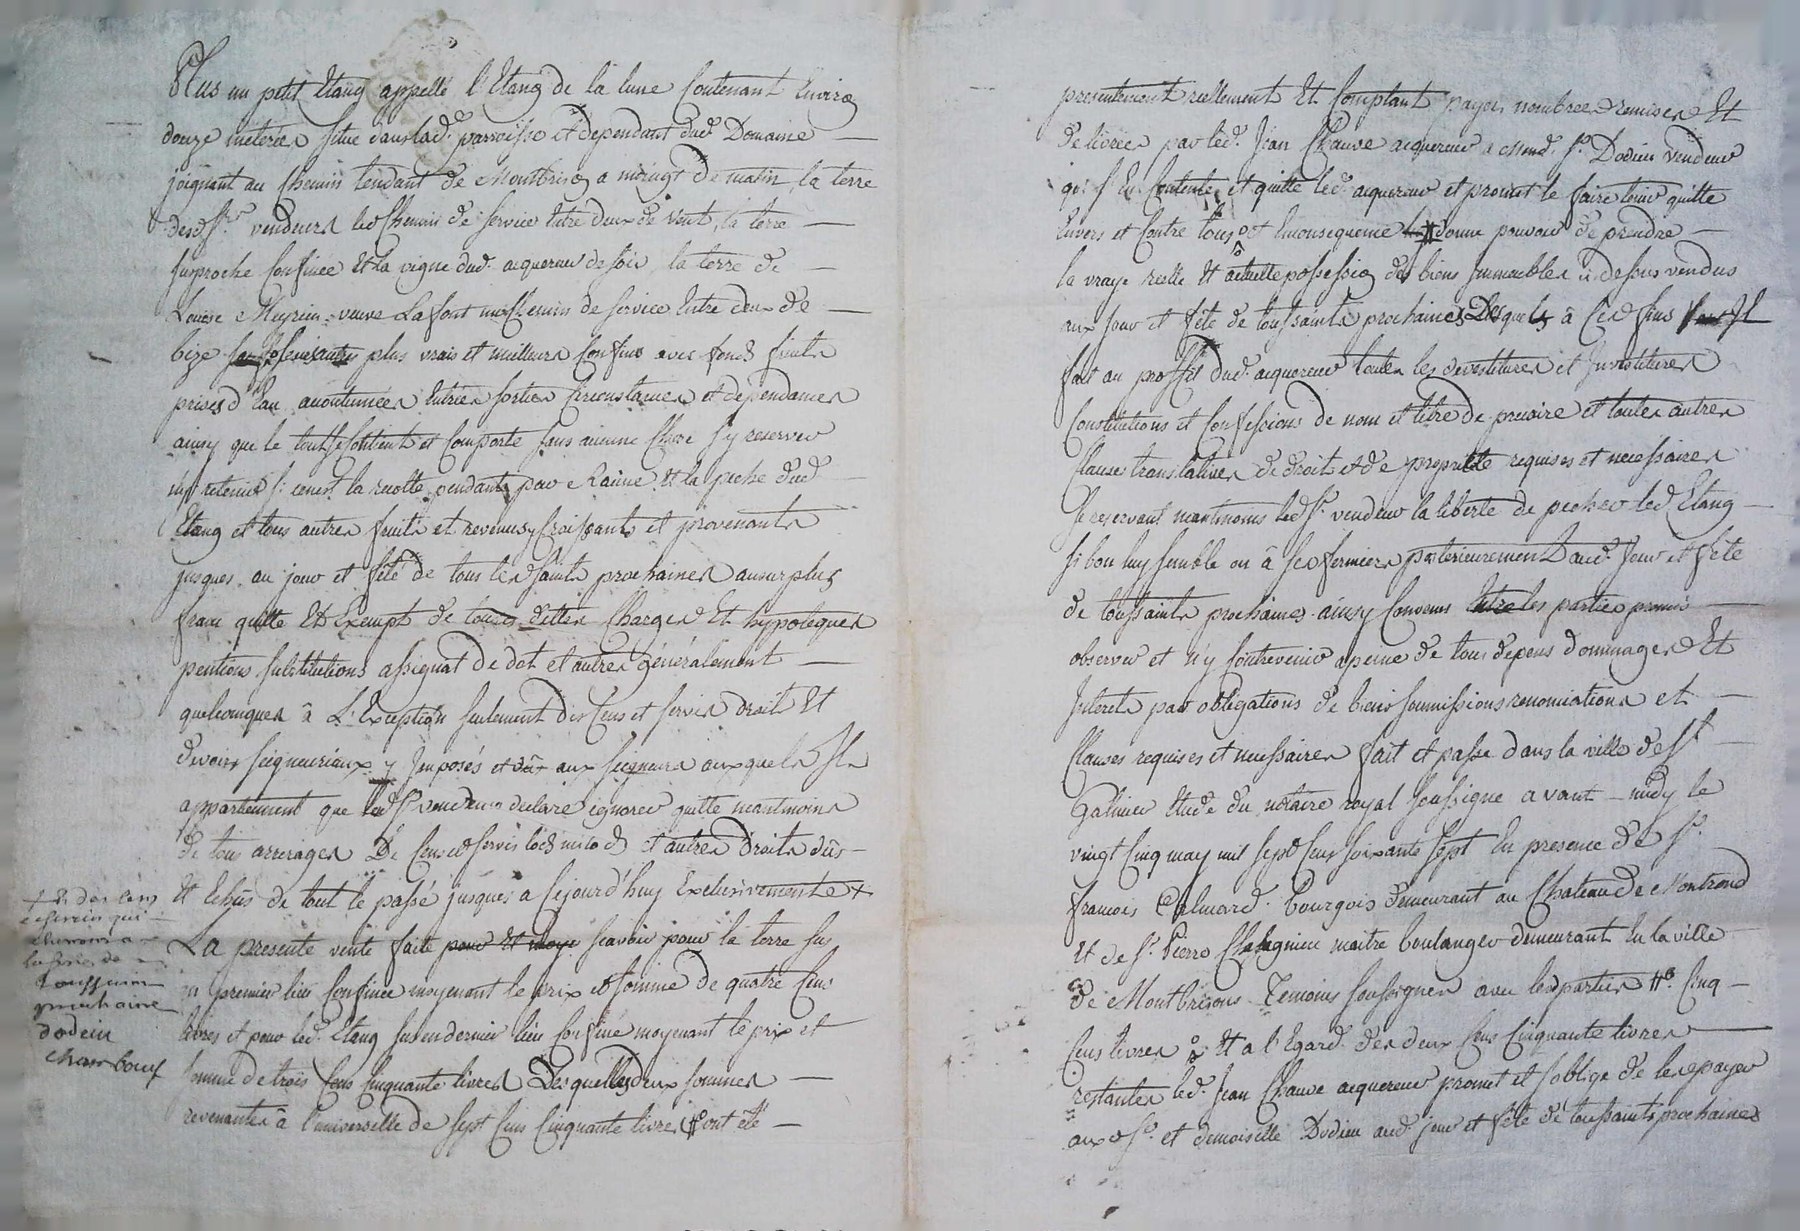 Plus un petit Etang appellé l'Etang de la lune Contenant Environ
douze meterées situé dans lad.e parroisse et dependant dud. Domaine
joignant au Chemin tendant de Montbrison a moingt de matin, la terre
desd. Srs vendeurs led Chemin de service Entre deux de vent, la terre
susproche Confinée et la vigne dud. acquereur de soir, la terre de
Louise Meyrieu veuve Lafont un Chemin de service Entre deux de
bize plus vrais et meilleurs Confins avec fonds fruits
prises d'Eau accoutumées Entrées sorties Circonstances et dependances
ainsy que le tout se Contient et Comporte sans aucune Chose s'y reserver
ny retenir si ce n'est la recolte pendante par Racine et la peche dud
Etang et tous autres fruits et revenus y Croissants et provenants
jusques au jour et fête de tous les saints prochaines au surplus
franc quitte Et Exempt de touts dettes Charges Et hypoteques
pentions substitutions assignat de dot et autres généralement
quelconques â L'Exception seulement des Cens et servis droits Et
devoirs seigneuriaux y Jmposés et dûs aux seigneurs auxquels Jls
appartiennent que led Sr vendeur declare ignorer quitte neantmoins
de tous arrerages De Cens et servis lods milods et autres droits dûs
Et Echus de tout le passé jusques a Cejourd'huy Exclusivement +
La presente vente faite pour Et moye scavoir pour la terre su
en premier lieu Confinée moyenant le prix et somme de quatre Cens
livres et pour led. Etang sus en dernier lieu Confiné moyenant le prix et
somme de trois Cens Cinquante livres Desquelles deux sommes
revenantes â l'universelle de sept Cens Cinquante livres # ont été
+ Et des Cens
et servis qui
cherront a
la fête de
Toussaint
prochaine
dodieu
Chambouf
presentement reellement Et Comptant payés nombrées remises Et
delivrées par led. Jean Chauve acquereur a mond. Sr. Dodieu vendeur
qui s'En Contente et quitte led. acquereur et promet le faire tenir quitte
Envers et Contre tous et En consequence donne pouvoir de prendre
la vraye reelle Et actuelle possession des biens Jmmeubles ci dessus vendus
aux jour et fête de toussaints prochaines Desquels â Ces fins Jl
fait au proffit dud. acquereur toutes les devestitures et Jnvestitures
Constitutions et Confessions de nom et titre de precaire et toutes autres
Clauses translatives de droits et de proprieté requises et necessaires
se reservant neantmoins led Sr. vendeur la liberté de pecher led. Etang
si bon luy semble ou â ses fermiers posterieurement aud. jour et fête
de toussaints prochaines ainsy Convenu Entre les parties promis
observer et n'y Contrevenir a peine de tous depens dommages Et
Jnterets par obligations de biens soumissions renonciations et
Clauses requises et necessaires fait et passé dans la ville de St
Galmier Etude du notaire royal soussigné avant midy le
vingt Cinq may mil sept Cens soixante sept En presence de Sr.
francois Calmard bourgois demeurant au Chateau de Montrond
Et de Sr. Pierre Chasagnieu maitre boulanger demeurant En la ville
de Montbrison Temoins soussignés avec les parties # Cinq
Cens livres Et a l'Egard des deux Cens Cinquante livres
restantes led. Jean Chauve acquereur promet et s'oblige de les payer
auxd Sr. et demoiselle Dodieu aud. jour et fête de toussaints prochaines